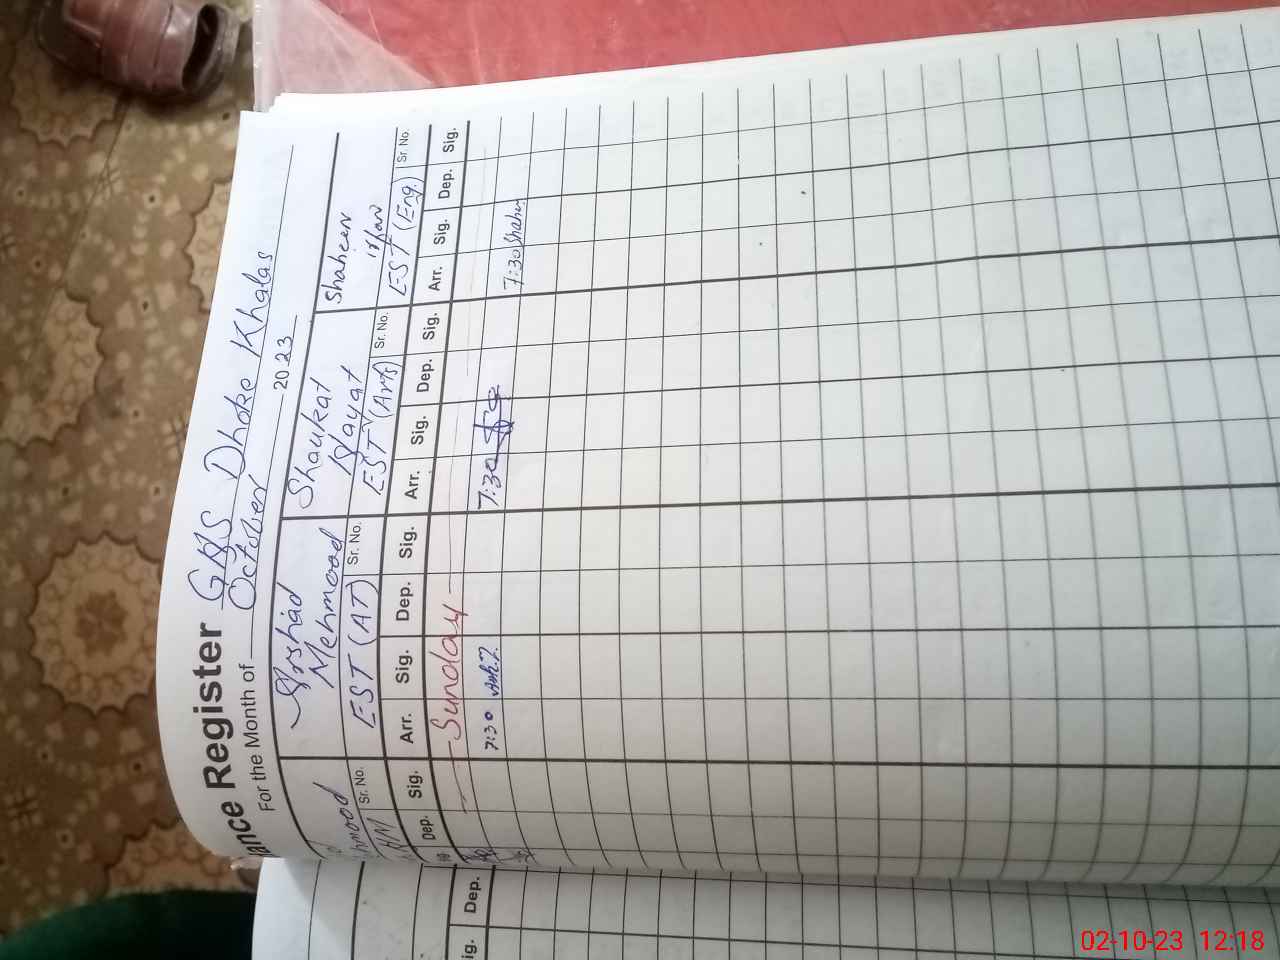 ance Register GHS Dhoke Khalas
For the Month of October 2023
hmood
HM
Sr. No.
Arshad
Mehmood
EST (AT)
Sr. No.
Shaukat
Hayat
EST (Arts)
Sr. No.
Shaheen
EST (Eng.)
Sr. No.
Dep. Sig. Arr. Sig. Dep. Sig. Arr. Sig. Dep. Sig. Arr. Sig. Dep. Sig.
Sunday
7:30
7:30
7:30 Shaheen
ig. Dep.
02-10-23 12:18